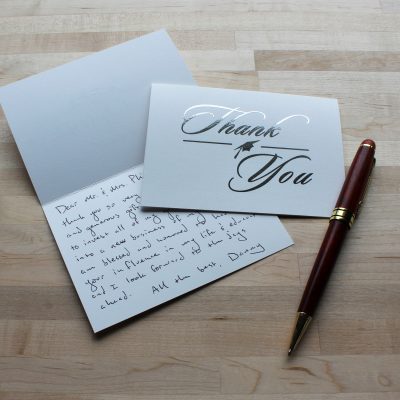 Thank
You
Dear Mr. & Mrs.
thank you so very
and generous
to invest all of my
into a new business
am blessed and honored to
your influence in my life &
and I look forward to the days
ahead. All the best, Danny